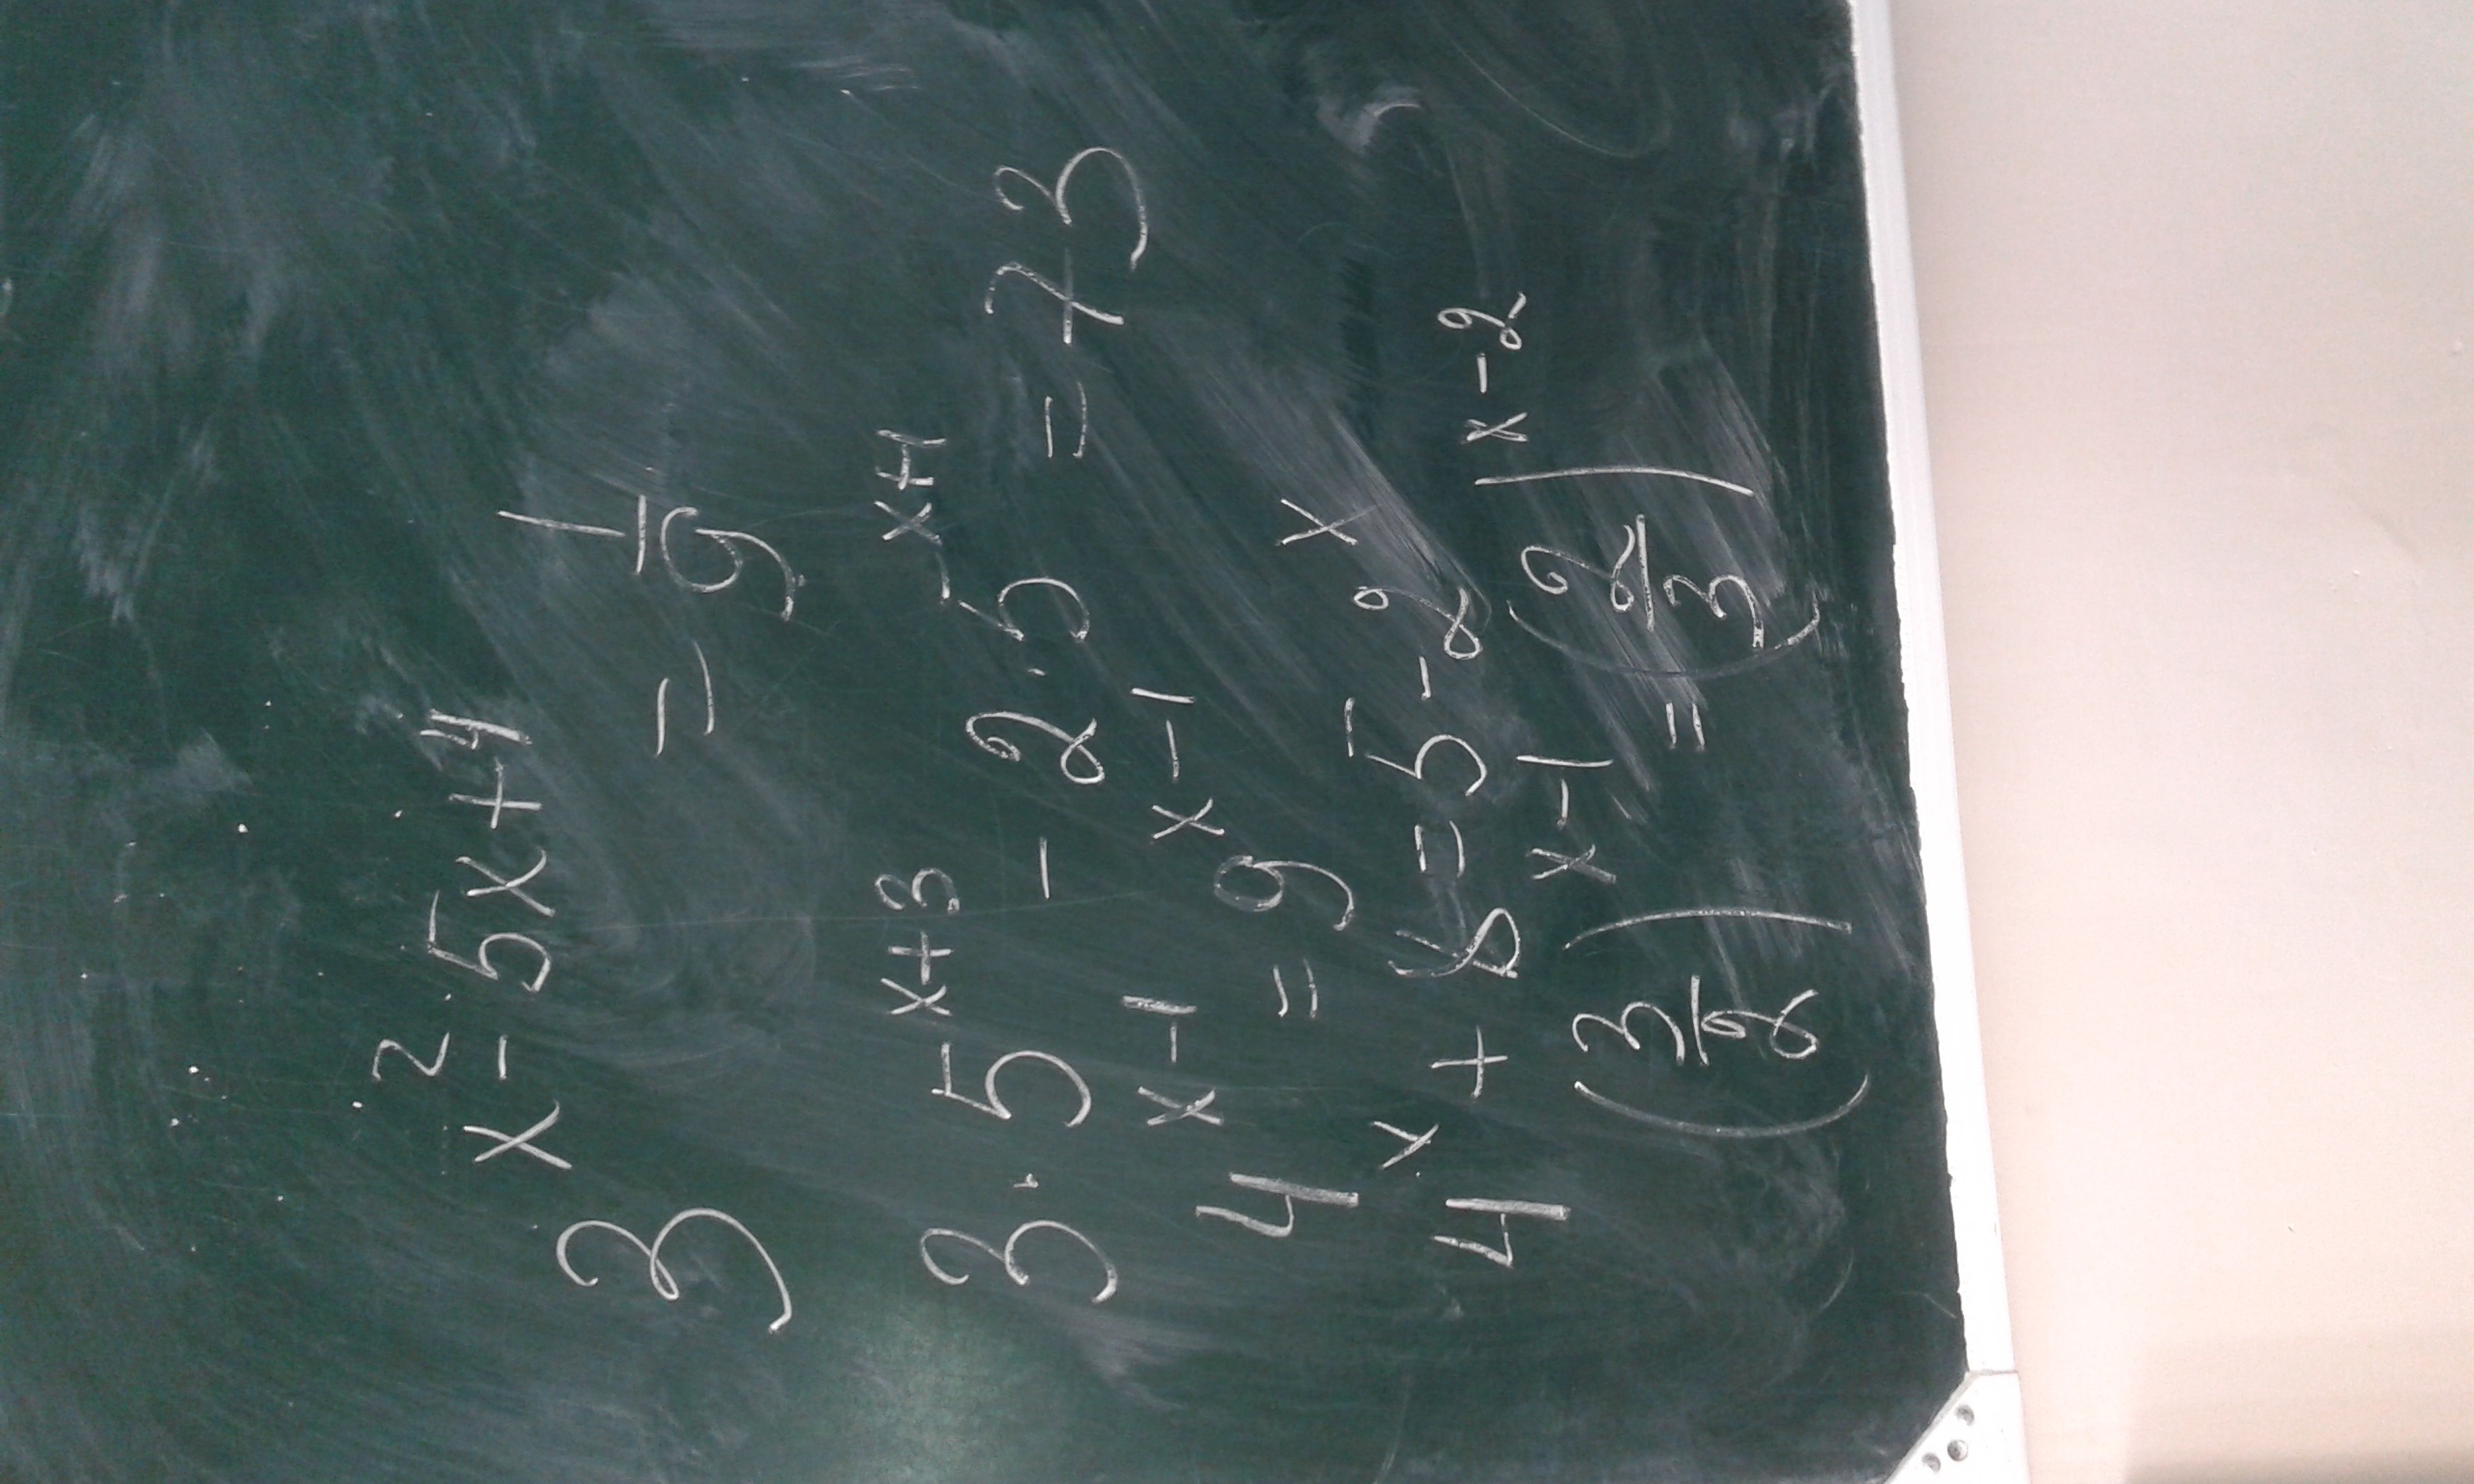 3^{x^2-5x+4} = \frac{1}{9}
3·5^{x+3} - 2·5^{x+1} = 73
4^{x-1} = 9^{x-1}
4^x + 8 = 5 - 2^x
(\frac{3}{2})^{x-1} = (\frac{2}{3})^{x-2}